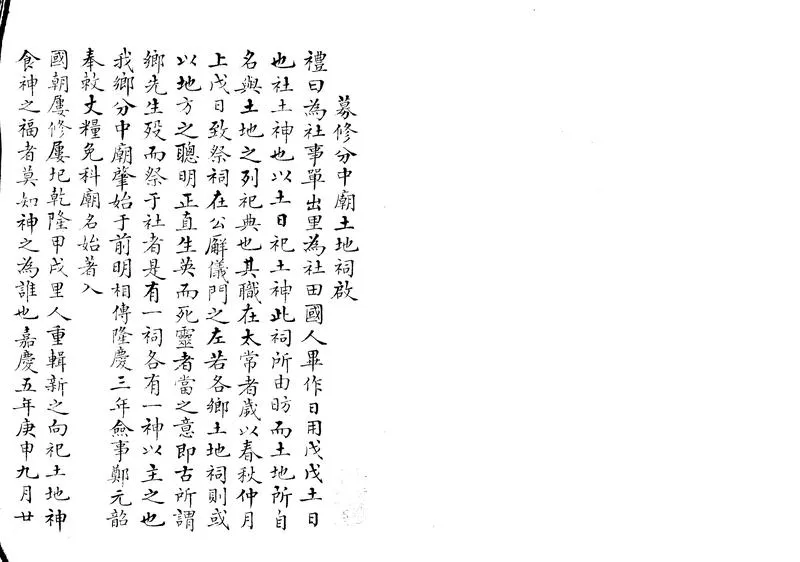 募修分中廟土地祠啟
禮曰為社事單出里為社田國人畢作日用戊戊土日
也社土神也以土日祀土神此祠所由昉而土地所自
名與土地之列祀典也其職在太常者歲以春秋仲月
上戊日致祭祠在公廨儀門之左若各鄉土地祠則或
以地方之聰明正直生英而死靈者當之意即古所謂
鄉先生歿而祭于社者是有一祠各有一神以主之也
我鄉分中廟肇始于前明相傳隆慶三年僉事鄭元韶
奉敕丈糧免科廟名始著入
國朝屢修屢圮乾隆甲戌里人重輯新之向祀土地神
食神之福者莫知神之為誰也嘉慶五年庚申九月廿